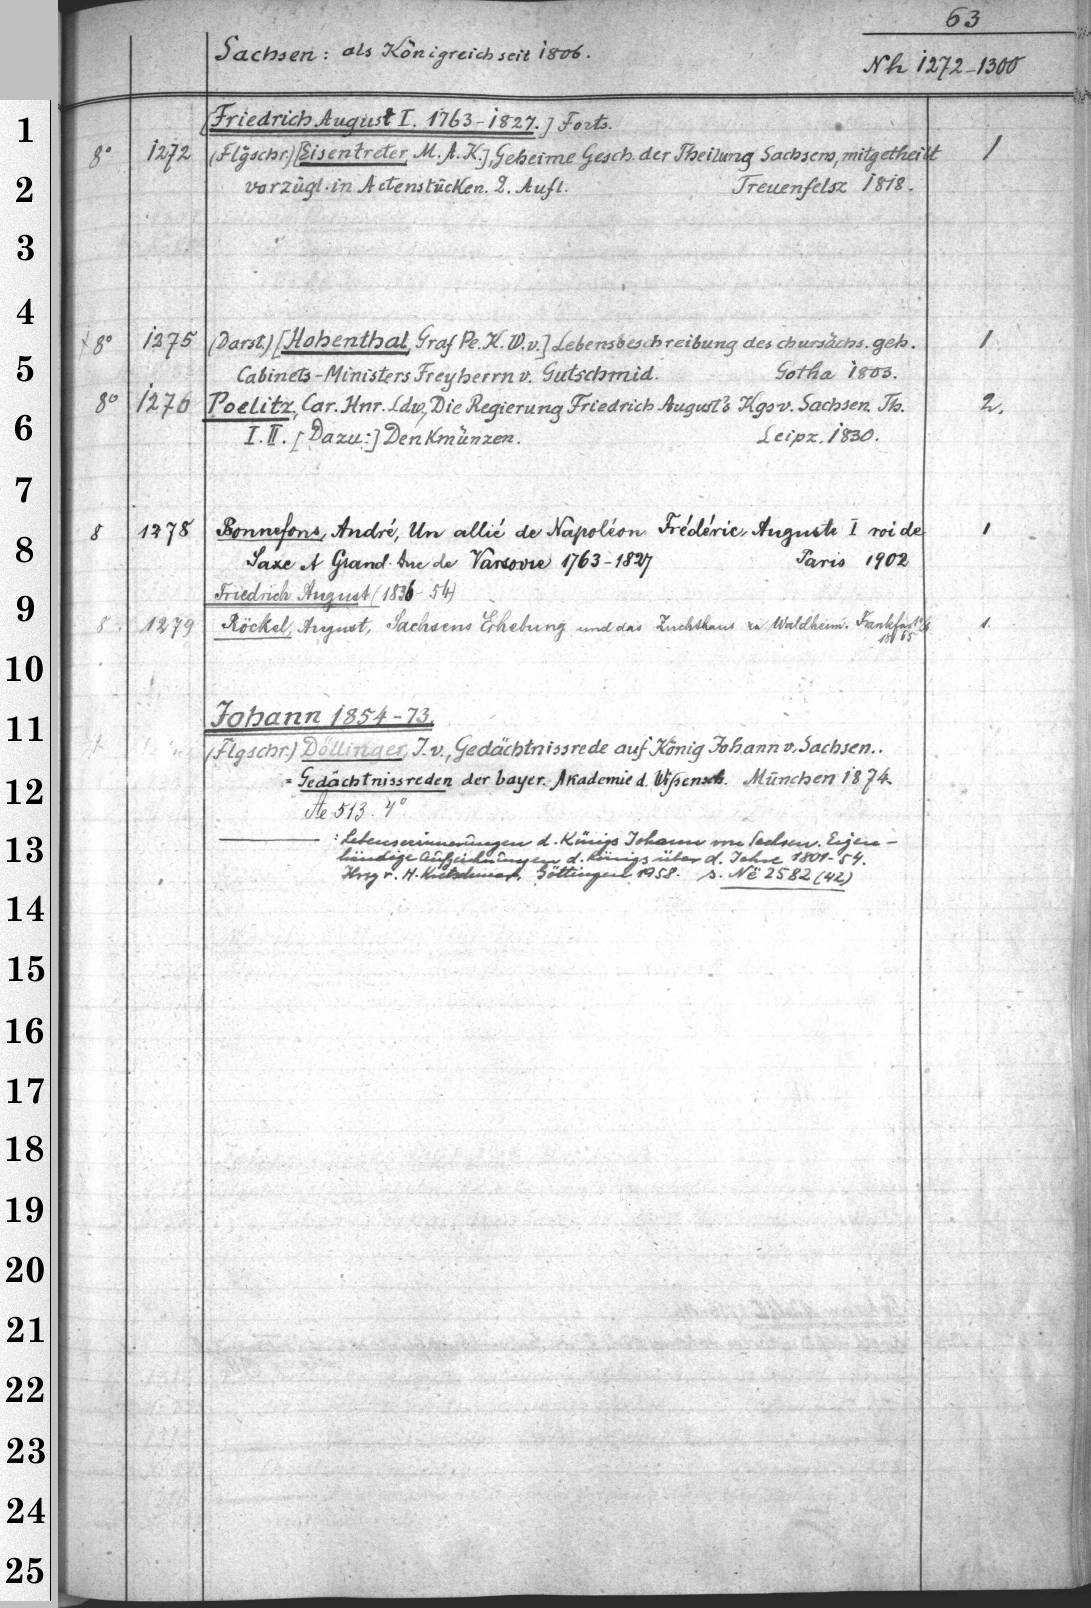 63
Sachsen: als Königreich seit 1806.
Nh 1272-1300
[Friedrich August I. 1763-1827.] Forts.
8° 1272 (Flgschr.) [Eisentreter, M. A. K.], Geheime Gesch. der Theilung Sachsens, mitgetheilt 1
vorzügl. in Actenstücken. 2. Aufl. Treuenfelsz 1818.
8° 1275 (Darst.) [Hohenthal, Graf Pe. K. W. v.] Lebensbeschreibung des chursächs. geh. 1
Cabinets-Ministers Freyherrn v. Gutschmid. Gotha 1803.
8° 1276 Poelitz, Car. Hnr. Ldw., Die Regierung Friedrich August's Kgs v. Sachsen. Th. 2.
I. II. [Dazu:] Denkmünzen. Leipz. 1830.
8 1278 Bonnefons, André, Un allié de Napoléon Frédéric Auguste I roi de 1
Saxe et Grand-Duc de Varsovie 1763-1827 Paris 1902
Friedrich August (1836-54)
8. 1279 Röckel, August, Sachsens Erhebung und das Zuchthaus zu Waldheim. Frankfurt 1.
1865
Johann 1854-73.
(Flgschr.) Döllinger, J. v., Gedächtnissrede auf König Johann v. Sachsen..
= Gedächtnissreden der bayer. Akademie d. Wissensch. München 1874.
Ae 513. 4°
: Lebenserinnerungen d. Königs Johann von Sachsen. Eigen-
händige Aufzeichnungen d. Königs über d. Jahre 1801-54.
Hrsg v. H. Kretschmar, Göttingen 1958. s. Në 2582 (42)
1
2
3
4
5
6
7
8
9
10
11
12
13
14
15
16
17
18
19
20
21
22
23
24
25